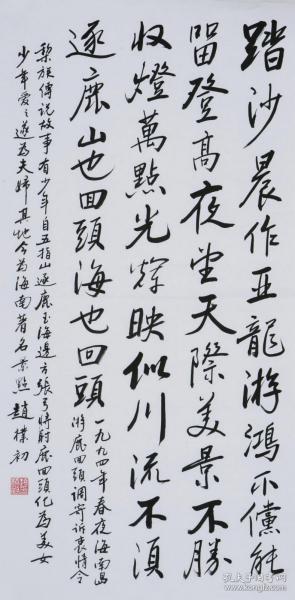 踏沙晨作亚龍游鴻爪儻能
留登高夜望天際美景不勝
收燈萬點光輝映似川流不須
逐鹿山也回頭海也回頭
一九九四年春夜海南島
游鹿回頭調寄訴衷情令
黎族傳說故事有少年自五指山逐鹿至海邊方張弓將射鹿回頭化為美女
少年愛之遂為夫婦其地今為海南著名景點 趙樸初